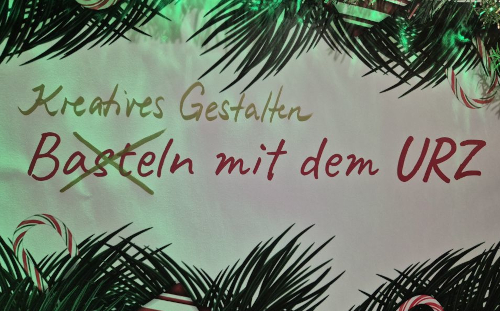 Kreatives Gestalten
Basteln mit dem URZ